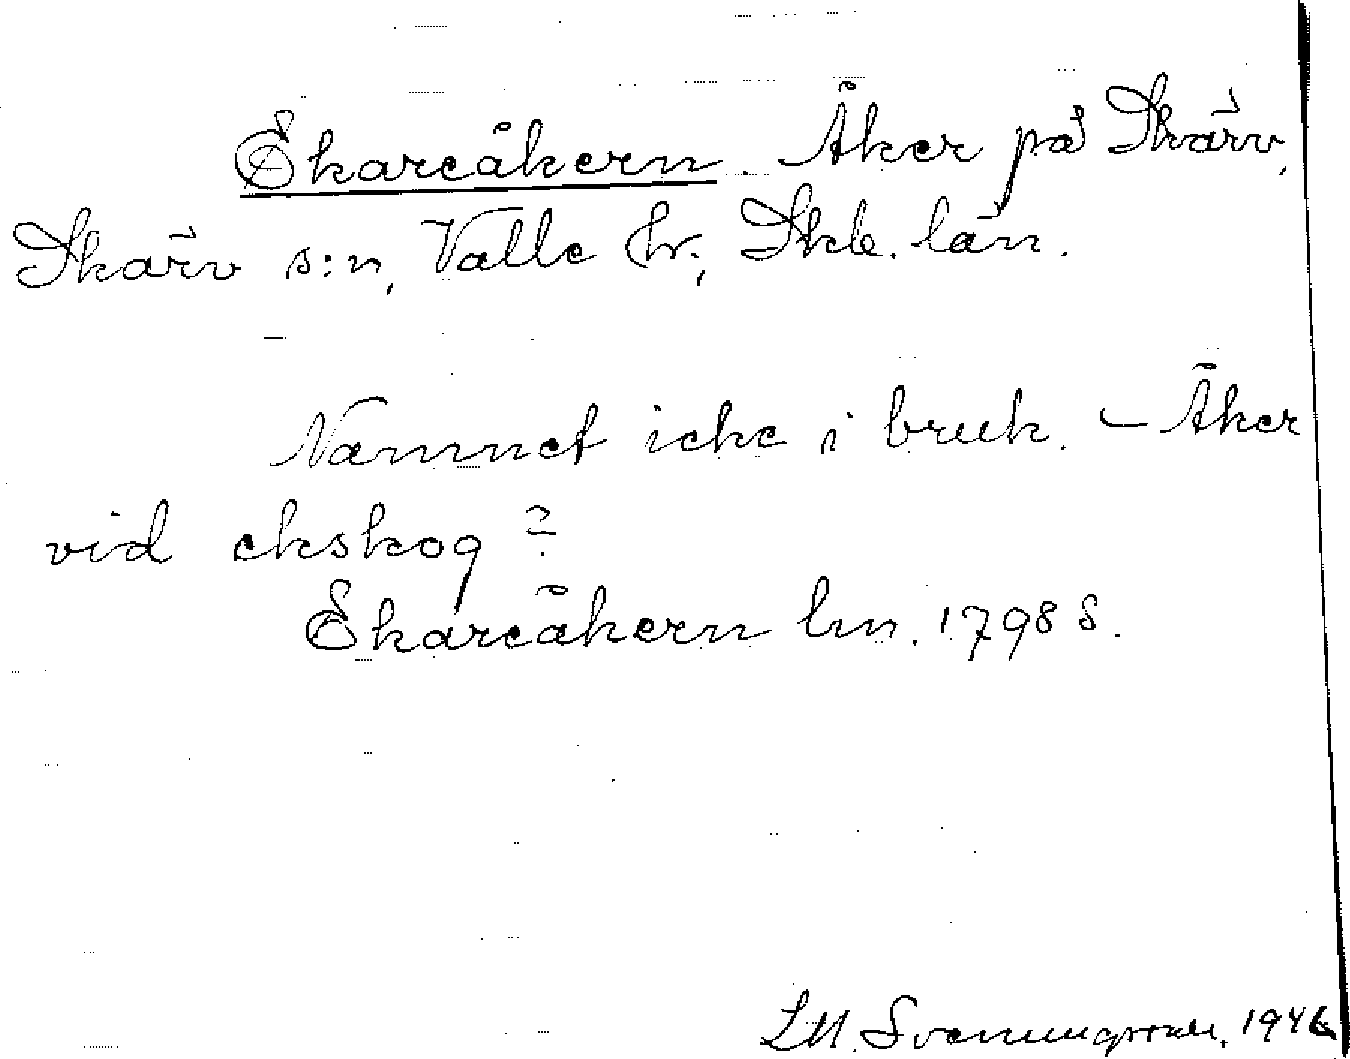 Ekareåkern. Åker på Skärv,
Skärv s:n, Valle hr., Skb. län.
Namnet icke i bruk. – Åker
vid ekskog?
Ekareåkern lm. 1798 8.
L M. Svenungsson. 1946